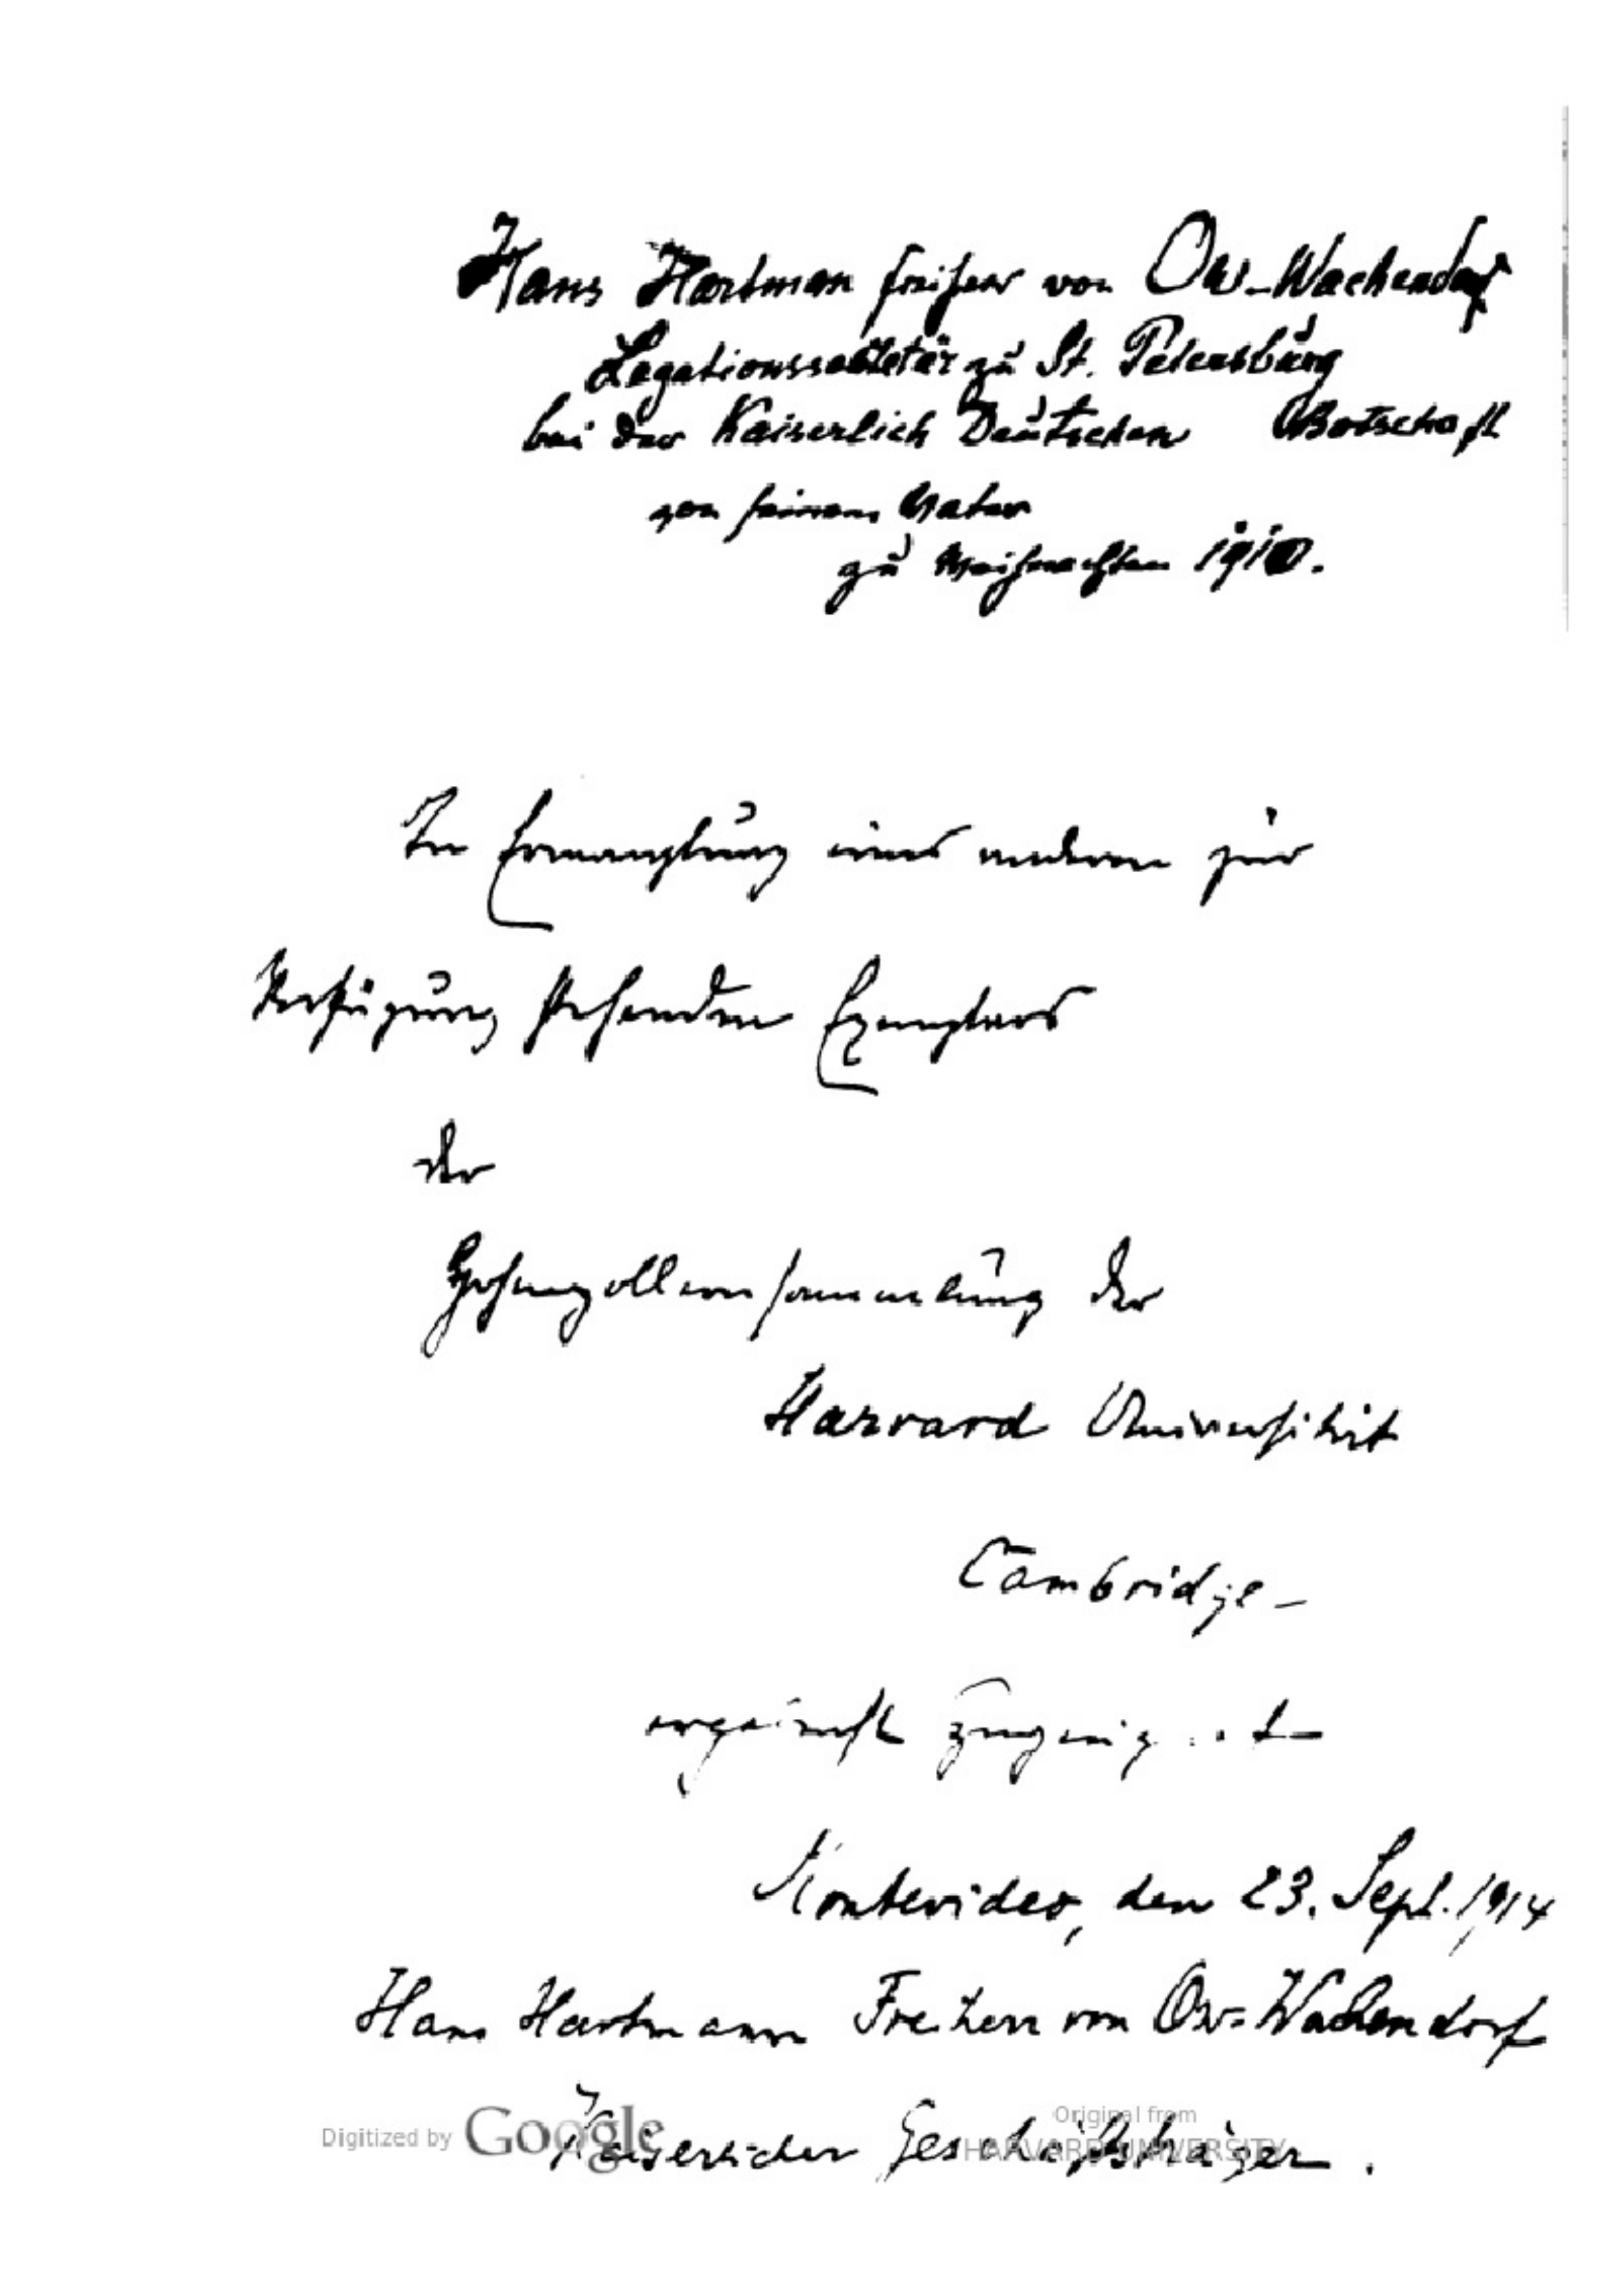 Hans Hartman Freiherr von Ow-Wachendorf
Legationssekretär zu St. Petersburg
bei der Kaiserlich Deutschen Botschaft
von seinem Vater
zu Weihnachten 1910.
In Ermanglung eines anderen zur
Verfügung stehenden Exemplars
der
Hohenzollernsammlung der
Harvard Universität
Cambridge –
ergebenst zugeeignet
Montevideo, den 23. Sept. 1914
Hans Hartmann Freiherr von Ow-Wachendorf
Kaiserlicher Geschäftsträger.
Digitized by Google
Original from
HARVARD UNIVERSITY